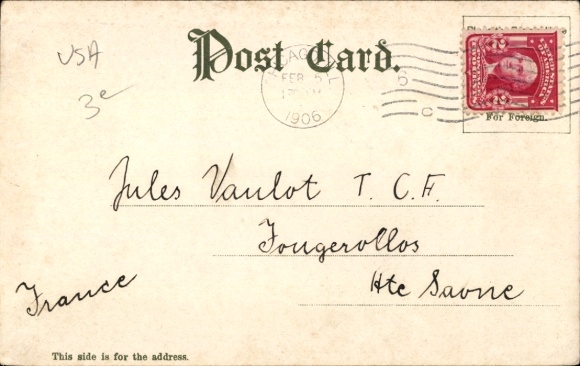 USA
3e
Post Card.
CHICAGO, ILL
FEB 5
1906
C
For Foreign.
Jules Vaulot T. C. F.
Fougerollos
Hte Saone
France
This side is for the address.